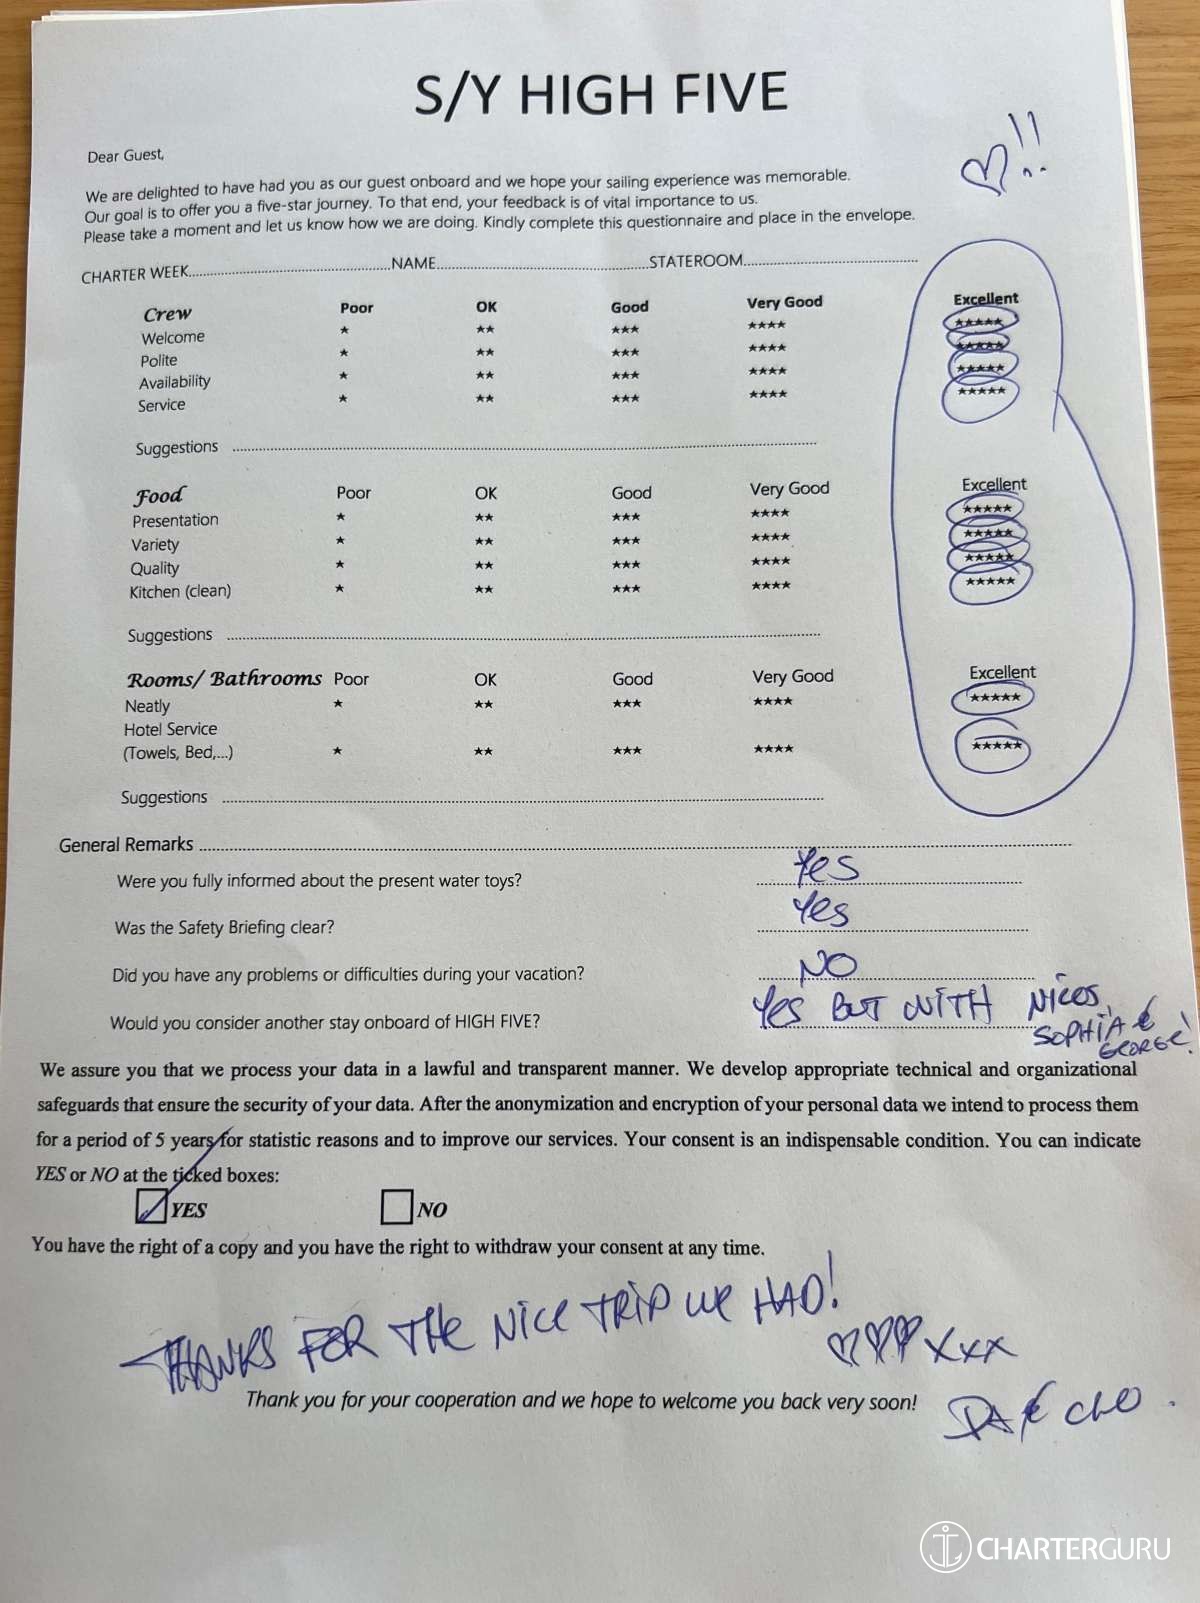 S/Y HIGH FIVE
!!
Dear Guest,
We are delighted to have had you as our guest onboard and we hope your sailing experience was memorable.
Our goal is to offer you a five-star journey. To that end, your feedback is of vital importance to us.
Please take a moment and let us know how we are doing. Kindly complete this questionnaire and place in the envelope.
CHARTER WEEK NAME STATEROOM
Crew Poor OK Good Very Good Excellent
Welcome ★ ★★ ★★★ ★★★★ ★★★★★
Polite ★ ★★ ★★★ ★★★★ ★★★★★
Availability ★ ★★ ★★★ ★★★★ ★★★★★
Service ★ ★★ ★★★ ★★★★ ★★★★★
Suggestions
Food Poor OK Good Very Good Excellent
Presentation ★ ★★ ★★★ ★★★★ ★★★★★
Variety ★ ★★ ★★★ ★★★★ ★★★★★
Quality ★ ★★ ★★★ ★★★★ ★★★★★
Kitchen (clean) ★ ★★ ★★★ ★★★★ ★★★★★
Suggestions
Rooms/ Bathrooms Poor OK Good Very Good Excellent
Neatly ★ ★★ ★★★ ★★★★ ★★★★★
Hotel Service
(Towels, Bed,...) ★ ★★ ★★★ ★★★★ ★★★★★
Suggestions
General Remarks
Were you fully informed about the present water toys? Yes
Was the Safety Briefing clear? Yes
Did you have any problems or difficulties during your vacation? NO
Would you consider another stay onboard of HIGH FIVE? Yes BUT WITH NICOS,
SOPHIA &
GEORGE!
We assure you that we process your data in a lawful and transparent manner. We develop appropriate technical and organizational
safeguards that ensure the security of your data. After the anonymization and encryption of your personal data we intend to process them
for a period of 5 years for statistic reasons and to improve our services. Your consent is an indispensable condition. You can indicate
YES or NO at the ticked boxes:
YES NO
You have the right of a copy and you have the right to withdraw your consent at any time.
THANKS FOR THE NICE TRIP WE HAD!
♡♡♡ xxx
Thank you for your cooperation and we hope to welcome you back very soon!
CHARTERGURU